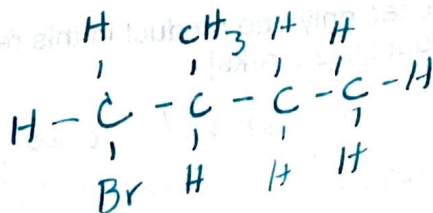 H CH3 H H
H - C - C - C - C - H
Br H H H